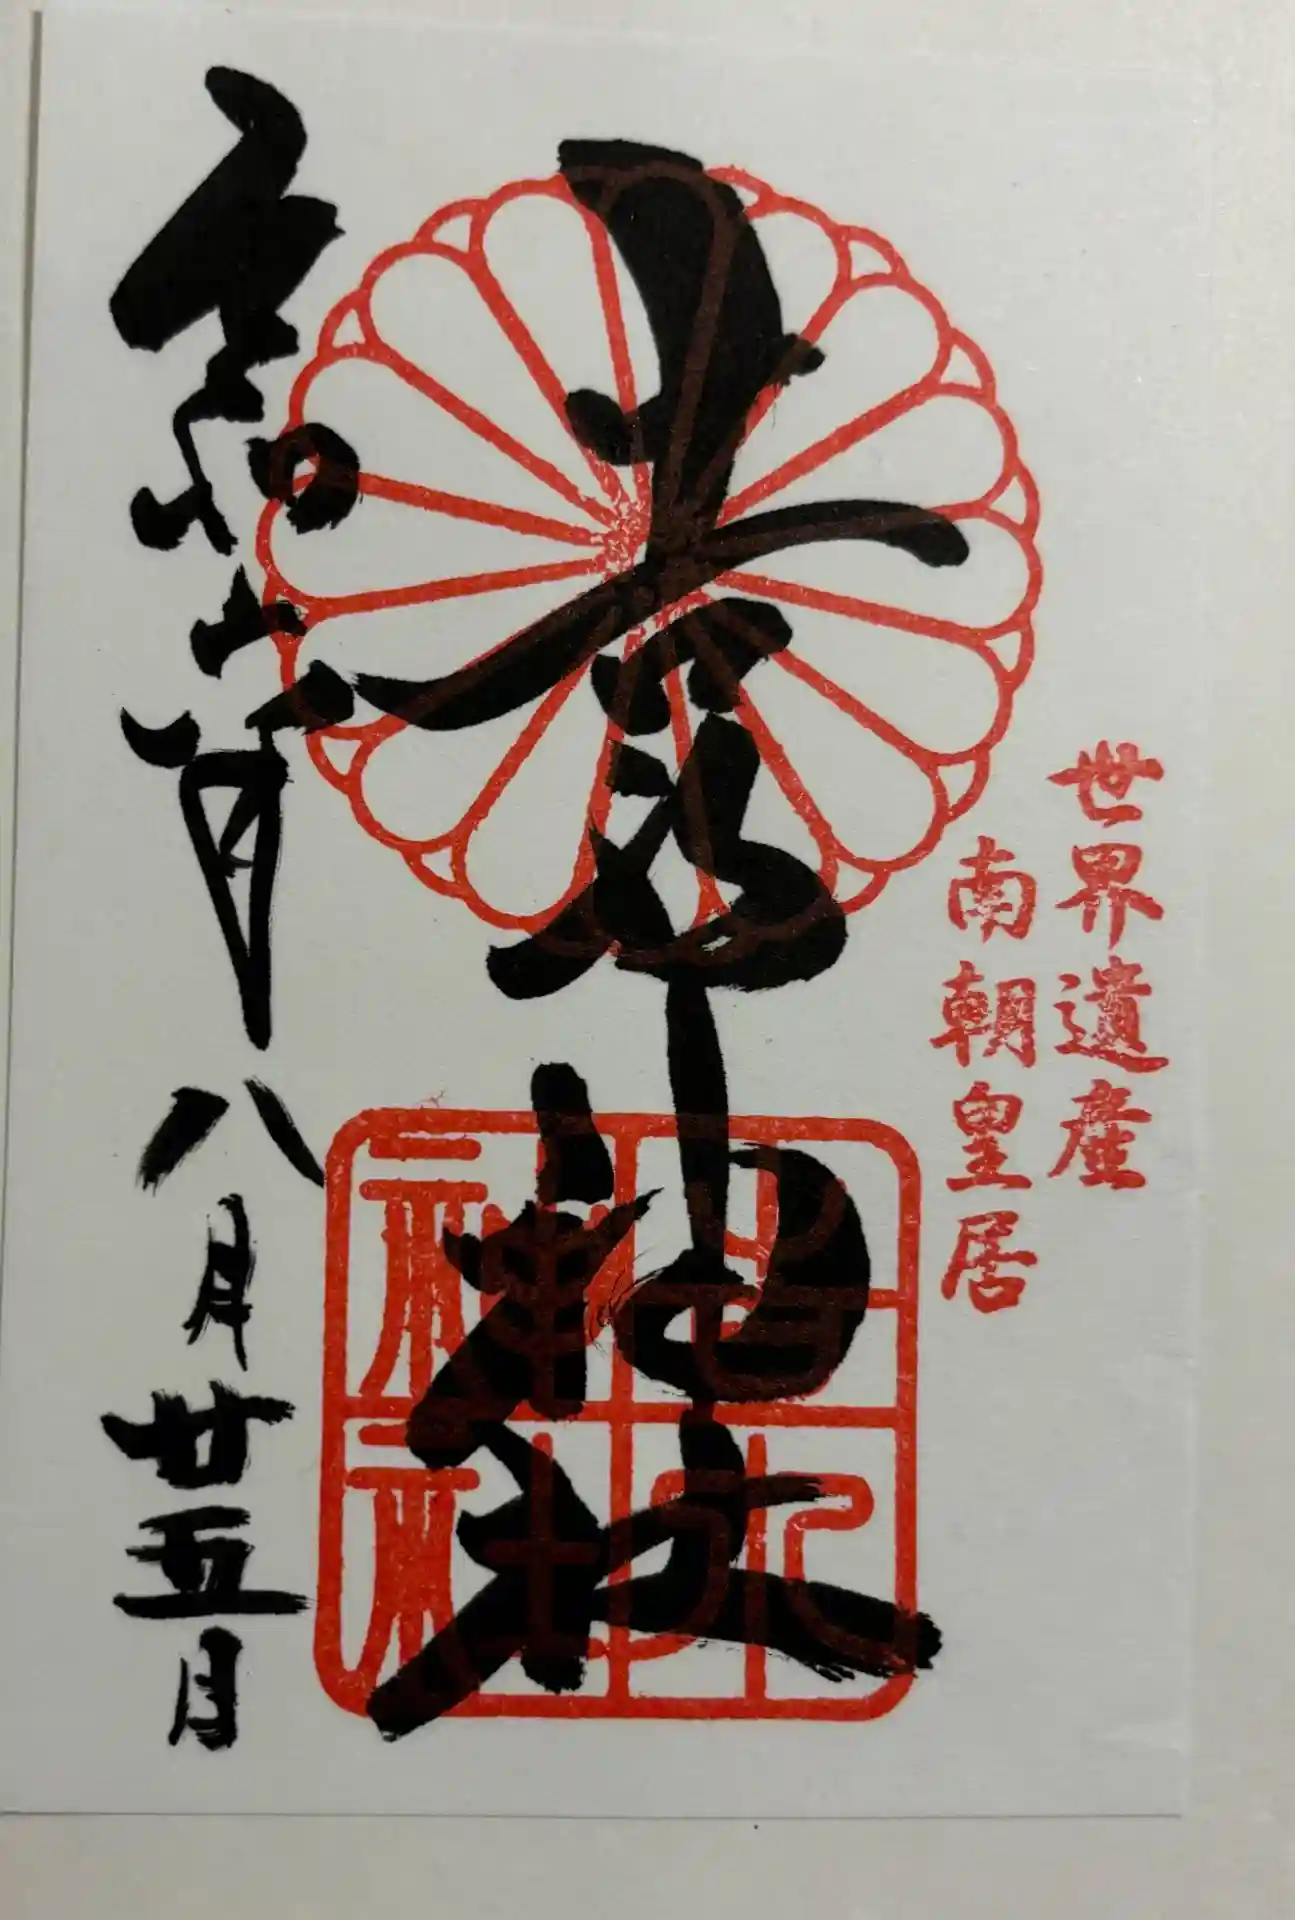 世界遺産
南朝皇居
吉水神社
吉水神社
令和
八月廿五日